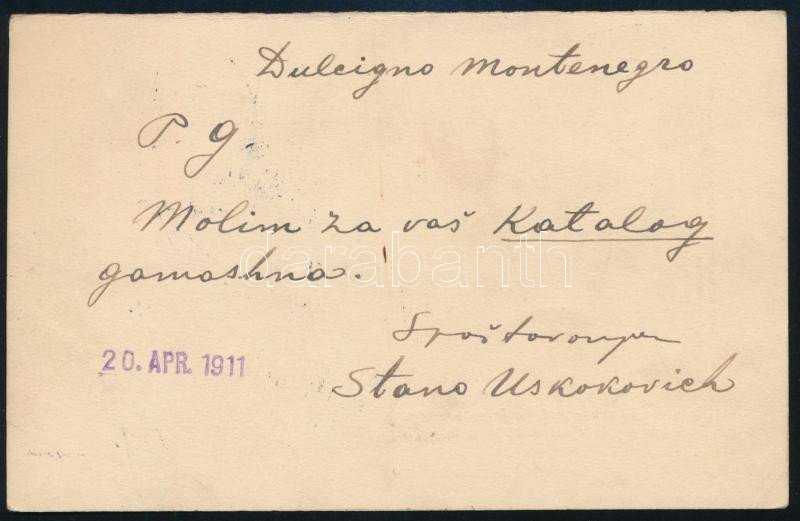 Dulcigno Montenegro
P. g.
Molim za vaš Katalog
gamashna.
S poštovanjem
Stano Uskokovich
20. APR. 1911
darabanth